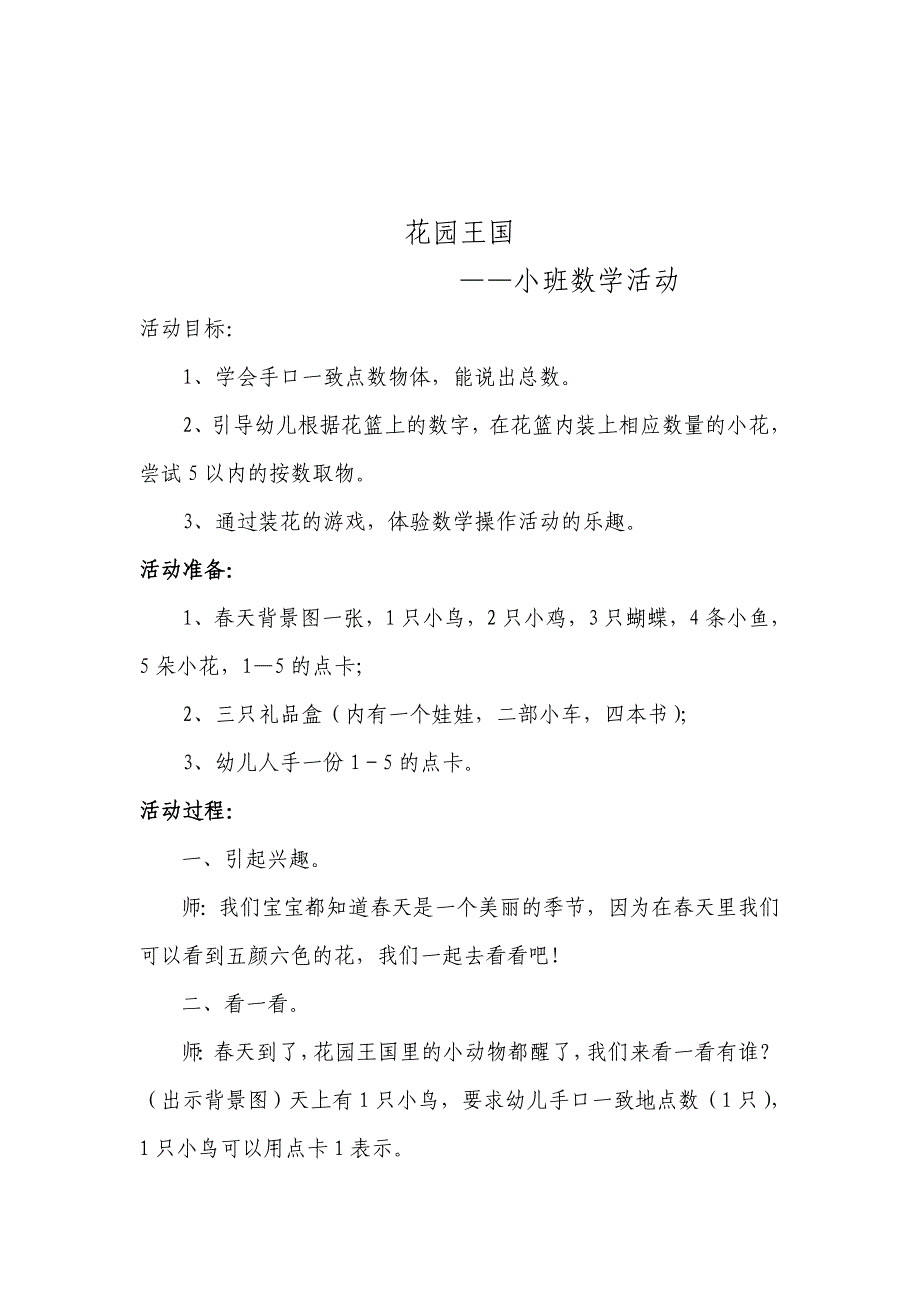 花园王国
——小班数学活动
活动目标：
1、学会手口一致点数物体，能说出总数。
2、引导幼儿根据花篮上的数字，在花篮内装上相应数量的小花，
尝试 5 以内的按数取物。
3、通过装花的游戏，体验数学操作活动的乐趣。
活动准备：
1、春天背景图一张，1 只小鸟，2 只小鸡，3 只蝴蝶，4 条小鱼，
5 朵小花，1—5 的点卡；
2、三只礼品盒（内有一个娃娃，二部小车，四本书）；
3、幼儿人手一份 1-5 的点卡。
活动过程：
一、引起兴趣。
师：我们宝宝都知道春天是一个美丽的季节，因为在春天里我们
可以看到五颜六色的花，我们一起去看看吧！
二、看一看。
师：春天到了，花园王国里的小动物都醒了，我们来看一看有谁？
（出示背景图）天上有 1 只小鸟，要求幼儿手口一致地点数（1 只），
1 只小鸟可以用点卡 1 表示。